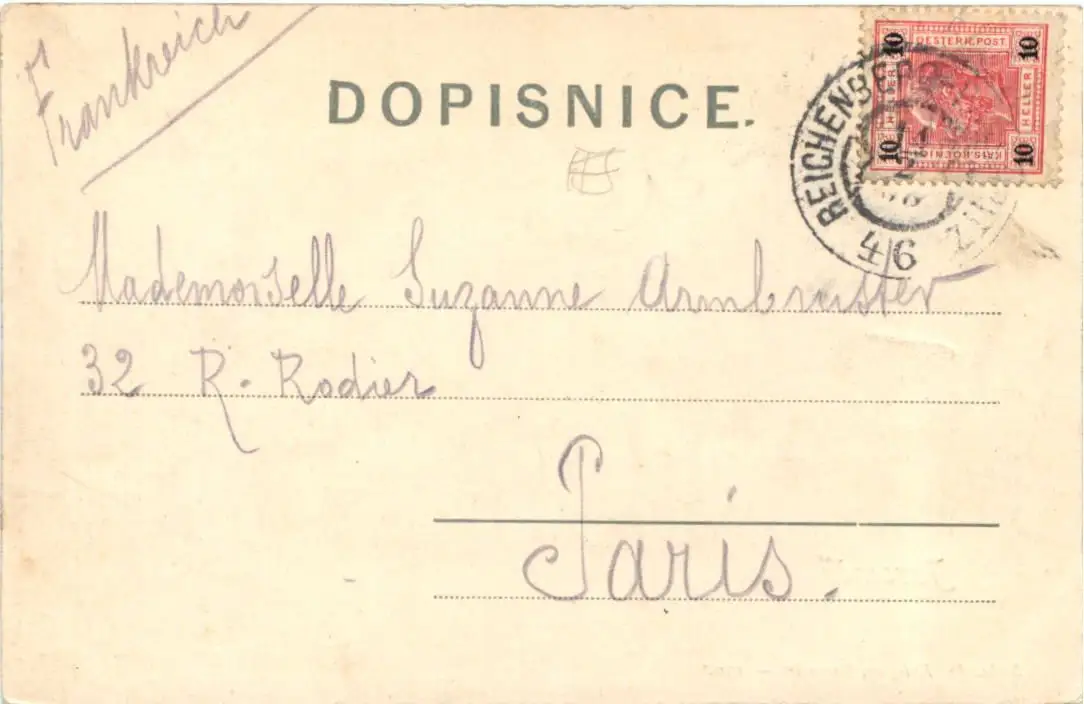 Frankreich
DOPISNICE.
10 OESTERR.POST 10
HELLER HELLER
10 KAIS.KOENIG 10
REICHENBERG
4/6
Mademoiselle Suzanne Armbruster
32 R. Rodier
Paris.